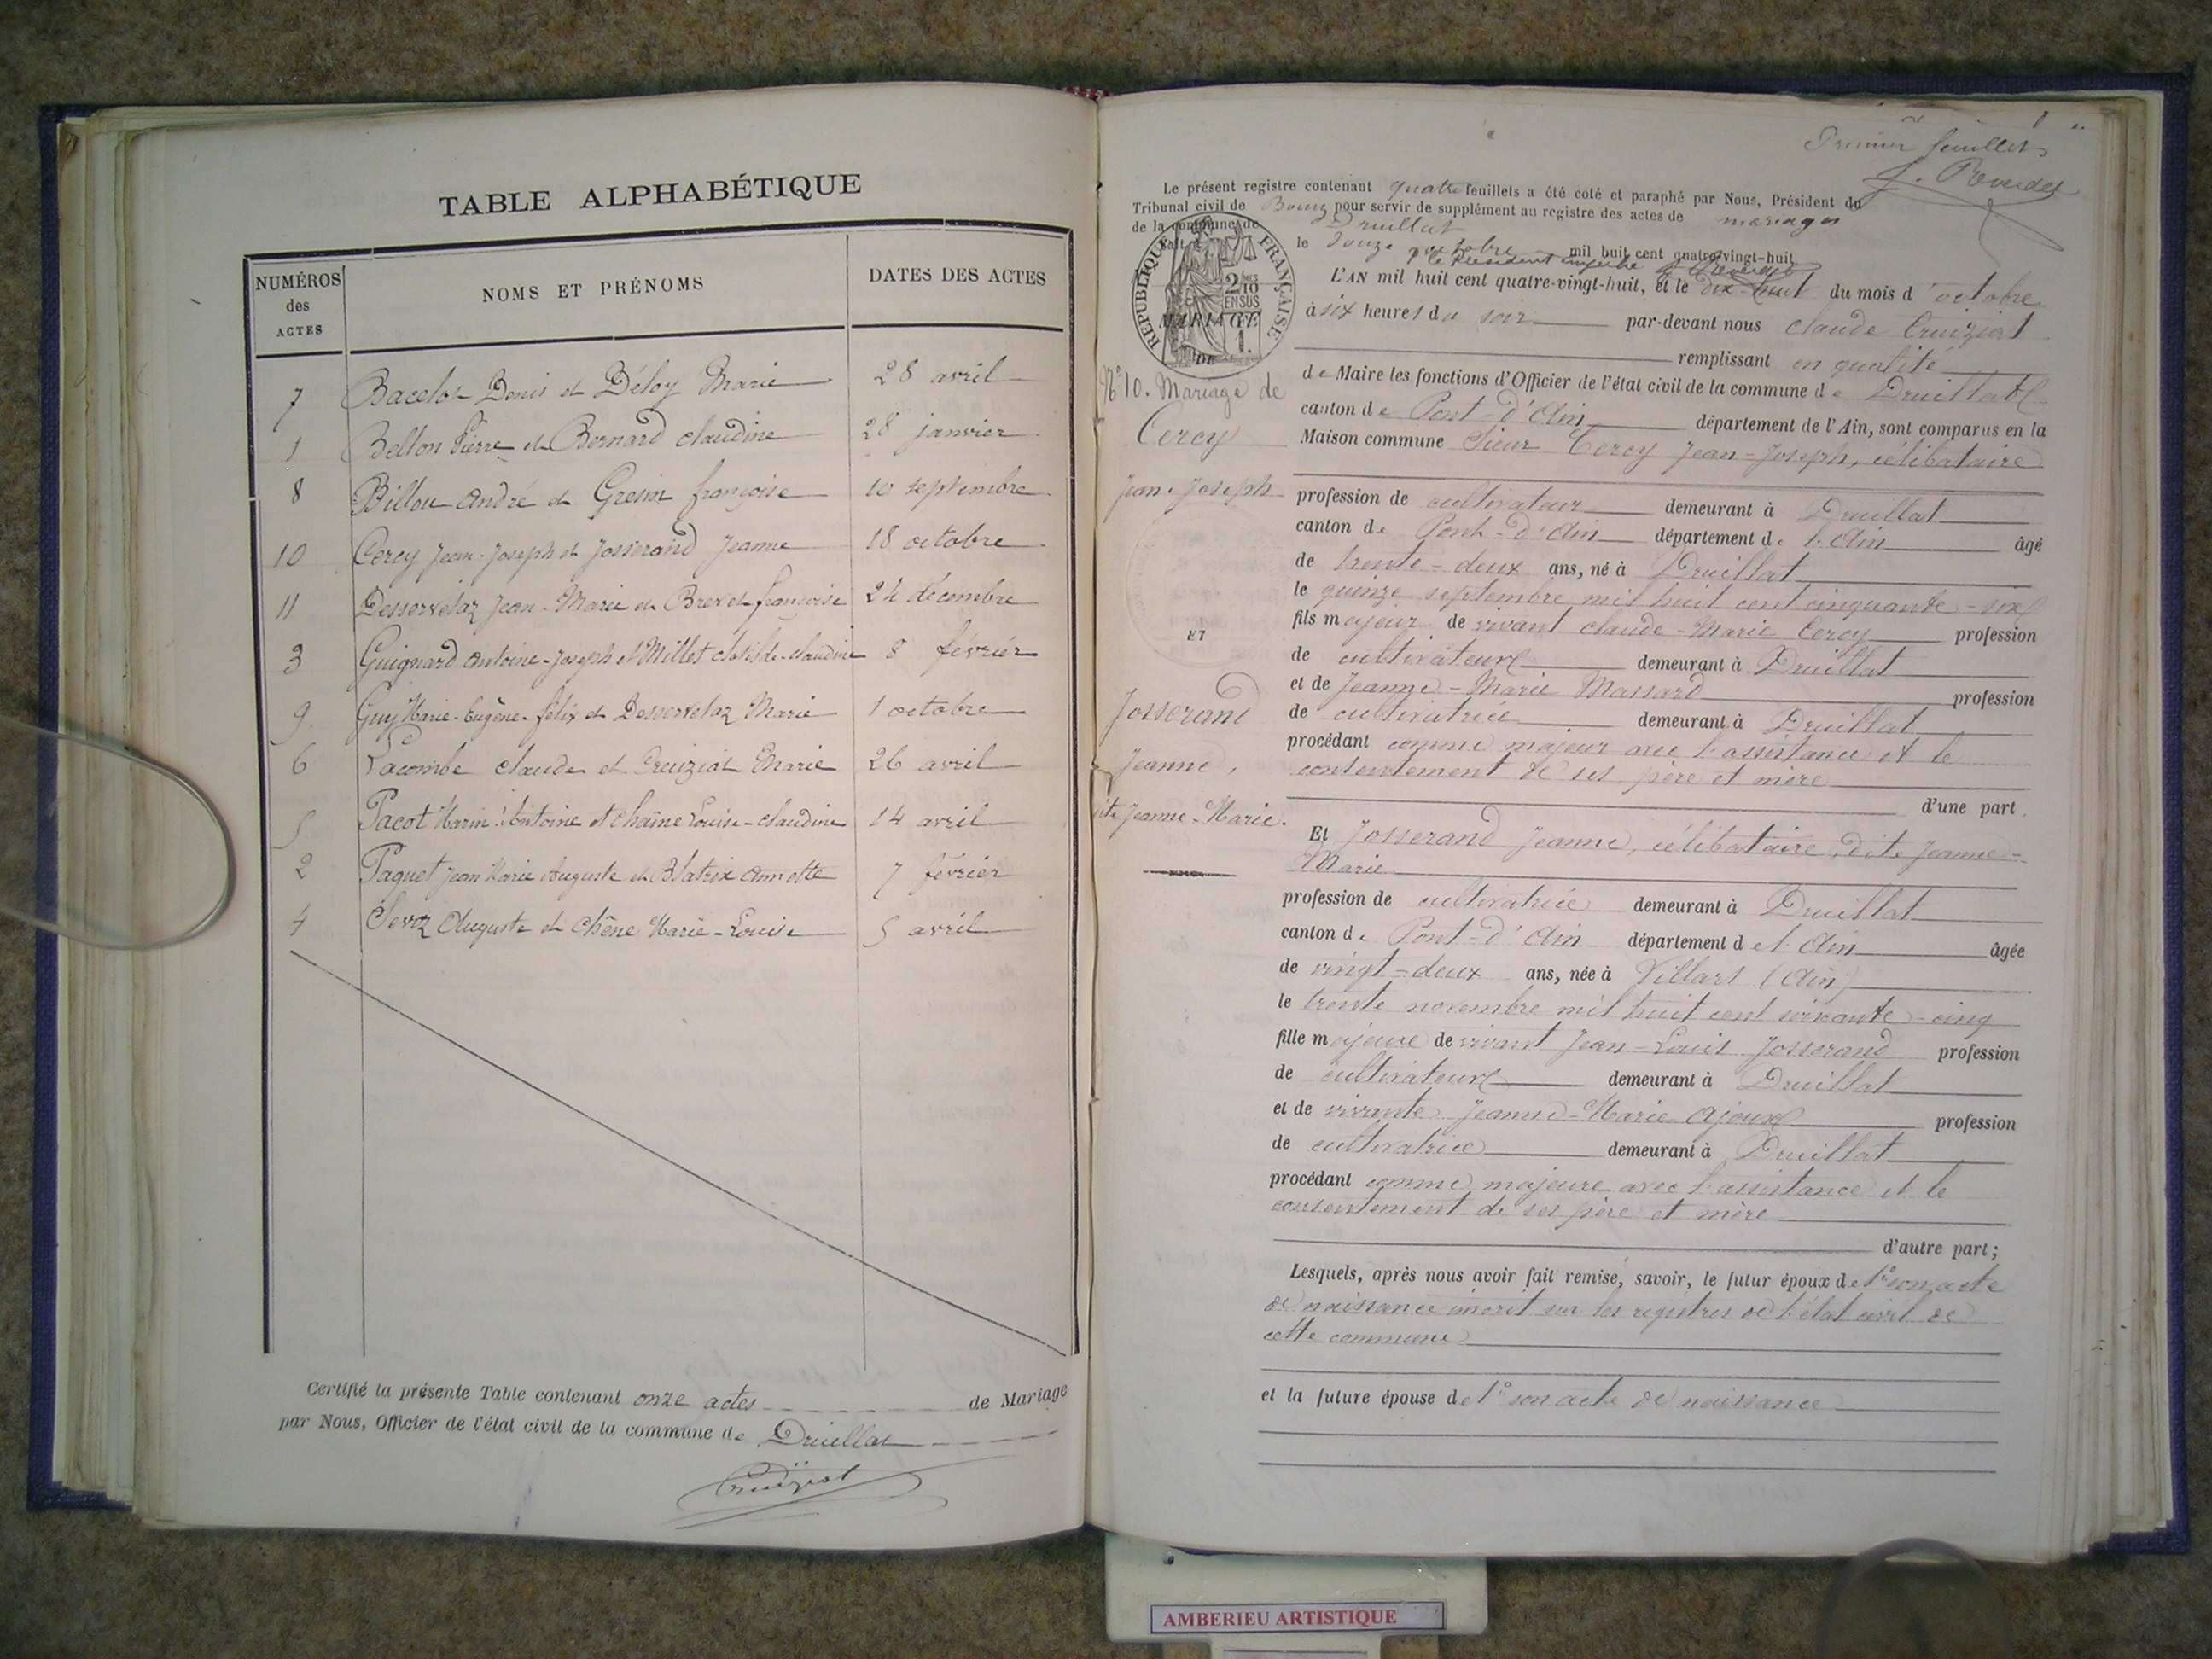 TABLE ALPHABÉTIQUE
NUMÉROS des ACTES
NOMS ET PRÉNOMS
DATES DES ACTES
7 Bacelot Denis et Déloy Marie 28 avril
1 Bellon Pierre et Bernard claudine 28 janvier
8 Billou André et Gresin françoise 10 septembre
10 Cercy Jean-Joseph et Josserand Jeanne 18 octobre
11 Desservetaz Jean-Marie et Brevet françoise 24 décembre
3 Guignard Antoine-Joseph et Millet clotilde-claudine 8 février
9 Guy Marie-Eugène-félix et Desservetaz Marie 1 octobre
6 Lacombe claude et Cruiziat Marie 26 avril
5 Pacot Marin-Antoine et chaîne Louise-claudine 14 avril
2 Paquet Jean Marie Auguste et Blatrix Annette 7 février
4 Sevoz Auguste et Chêne Marie-Louise 5 avril
Certifié la présente Table contenant onze actes de Mariage
par Nous, Officier de l'état civil de la commune de Druillat
Cruiziat
Premier feuillet
Le présent registre contenant quatre feuillets a été coté et paraphé par Nous, Président du
Tribunal civil de Bourg pour servir de supplément au registre des actes de mariages
de la commune de Druillat
fait à le douze octobre mil huit cent quatre-vingt-huit
le Président empêché
RÉPUBLIQUE FRANÇAISE
2/10 EN SUS
MARIAGE
1.
L'AN mil huit cent quatre-vingt-huit, et le dix-huit du mois d'octobre
à six heures du soir par-devant nous claude Cruiziat
remplissant en qualité
de Maire les fonctions d'Officier de l'état civil de la commune de Druillat
canton de Pont-d'Ain département de l'Ain, sont comparus en la
Maison commune Sieur Cercy Jean-Joseph, célibataire
N° 10. Mariage de
Cercy
Jean-Joseph
ET
Josserand
Jeanne,
dite Jeanne-Marie.
profession de cultivateur demeurant à Druillat
canton de Pont-d'Ain département de l'Ain âgé
de trente-deux ans, né à Druillat
le quinze septembre mil huit cent cinquante-six
fils majeur de vivant claude-Marie Cercy profession
de cultivateur demeurant à Druillat
et de Jeanne-Marie Massard profession
de cultivatrice demeurant à Druillat
procédant comme majeur avec l'assistance et le
consentement de ses père et mère
d'une part.
Et Josserand Jeanne, célibataire, dite Jeanne-
Marie
profession de cultivatrice demeurant à Druillat
canton de Pont-d'Ain département de l'Ain âgée
de vingt-deux ans, née à Villars (Ain)
le trente novembre mil huit cent soixante-cinq
fille majeure de vivant Jean-Louis Josserand profession
de cultivateur demeurant à Druillat
et de vivante Jeanne-Marie Ajoux profession
de cultivatrice demeurant à Druillat
procédant comme majeure avec l'assistance et le
consentement de ses père et mère
d'autre part;
Lesquels, après nous avoir fait remise, savoir, le futur époux de 1° son acte
de naissance inscrit sur les registres de l'état civil de
cette commune
et la future épouse de 1° son acte de naissance
AMBERIEU ARTISTIQUE